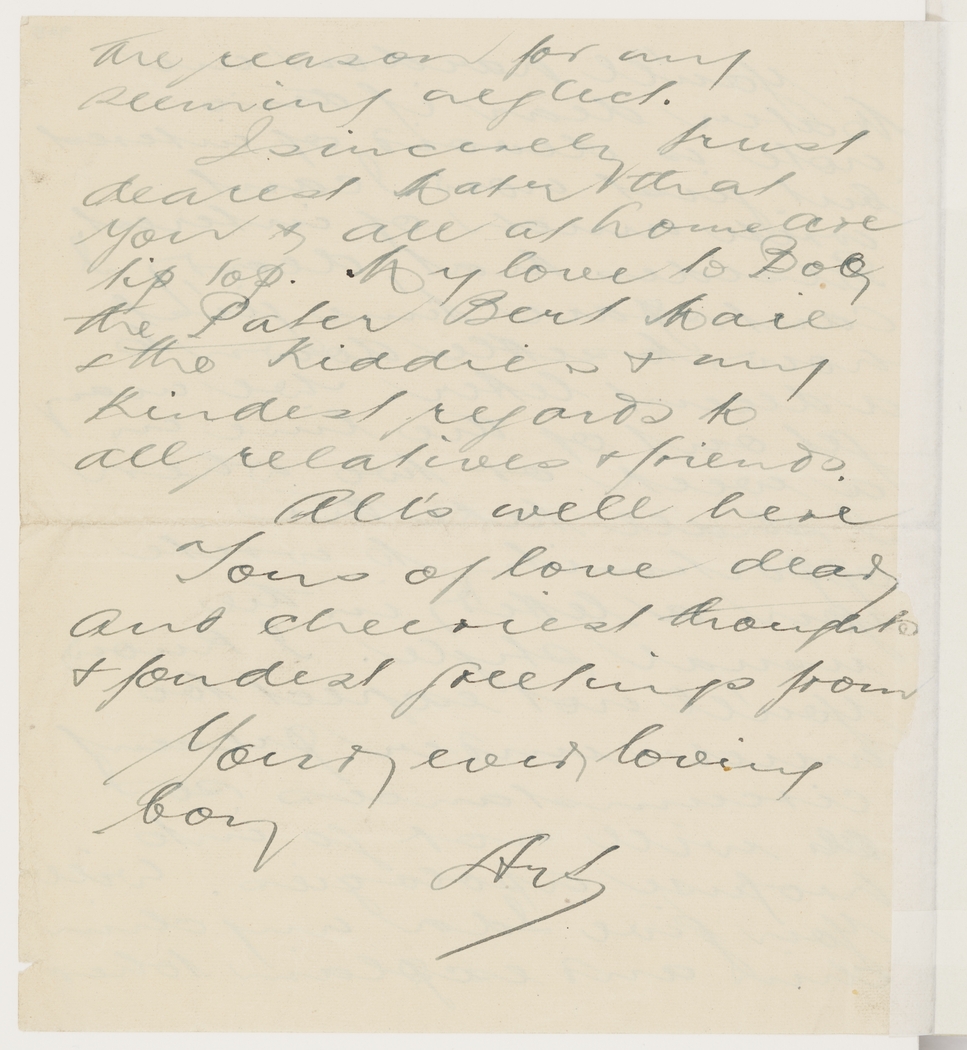 the reason for any
seeming neglect.
I sincerely trust
dearest Mater that
you & all at home are
tip top. My love to
the Pater Bert
& the Kiddies & my
kindest regards to
all relatives & friends.
All's well here
Tons of love dear,
and cheeriest thoughts
& fondest greetings from
Your ever loving
boy
Art